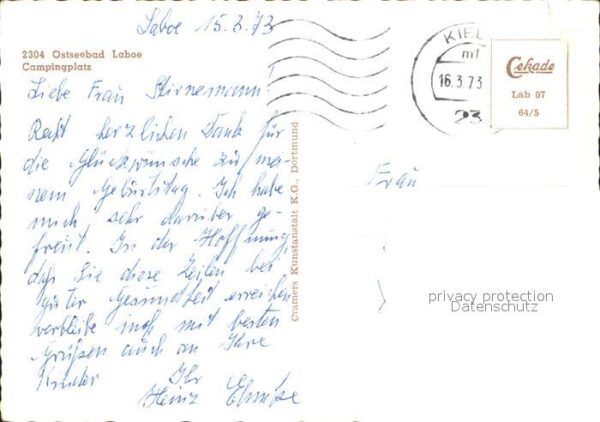 Laboe 15.3.73
2304 Ostseebad Laboe
Campingplatz
Liebe Frau Stirnemann!
Recht herzlichen Dank für
die Glückwünsche zu mei-
nem Geburtstag. Ich habe
mich sehr darüber ge-
freut. In der Hoffnung,
daß Sie diese Zeilen bei
guter Gesundheit erreichen
verbleibe ich mit besten
Grüßen auch an Ihre
Kinder
Ihr
Heinz
Craniers Kunstanstalt K.G., Dortmund
KIEL
mf
16.3.73
23
Cekade
Lab 07
64/5
Frau
privacy protection
Datenschutz